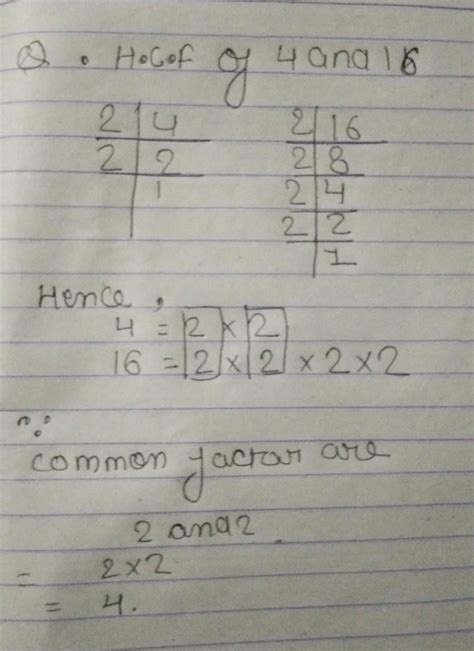 Q. H.C.F of 4 and 16
2 | 4    2 | 16
2 | 2    2 | 8
1    2 | 4
2 | 2
1
Hence,
4 = 2 × 2
16 = 2 × 2 × 2 × 2
∵
common factor are
2 and 2.
= 2×2
= 4.